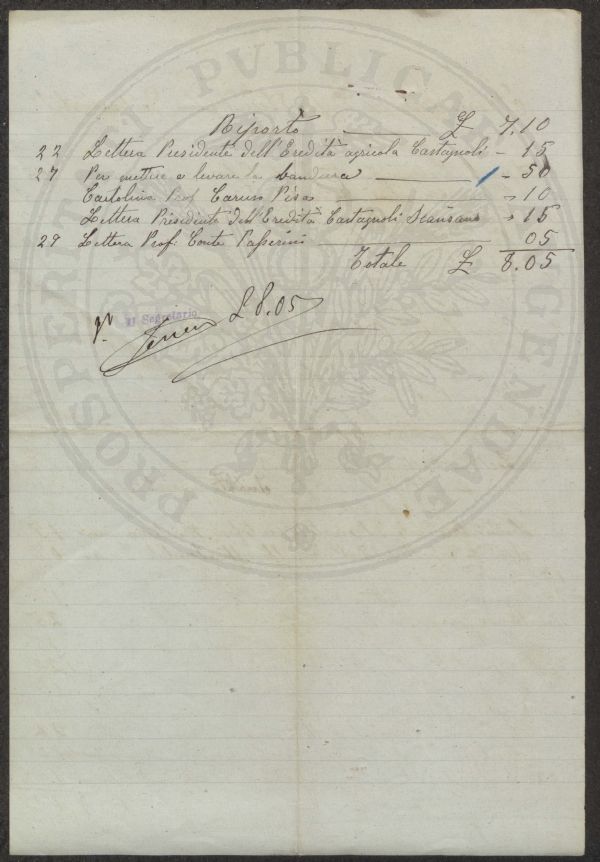 Riporto £ 7.10
22 Lettera Presidente dell'Eredità agricola Castagnoli - 15
27 Per mettere e levare la bandiera - 50
Cartolina Prof. Caruso Pisa " 10
Lettera Presidente dell'Eredità Castagnoli Scansano " 15
29 Lettera Prof. Conte Passerini 05
Totale £ 8.05
Il Segretario
£ 8.05
PROSPERITATI PVBLICAE AVGENDAE